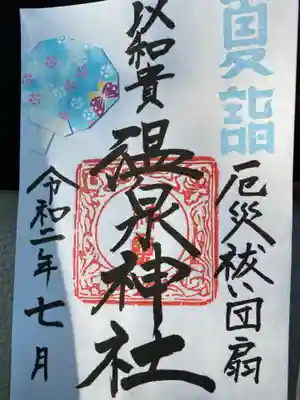 夏詣
厄災祓い団扇
以和貴
温泉神社
令和二年七月